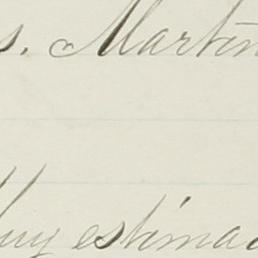 s. Martin
Muy estimad